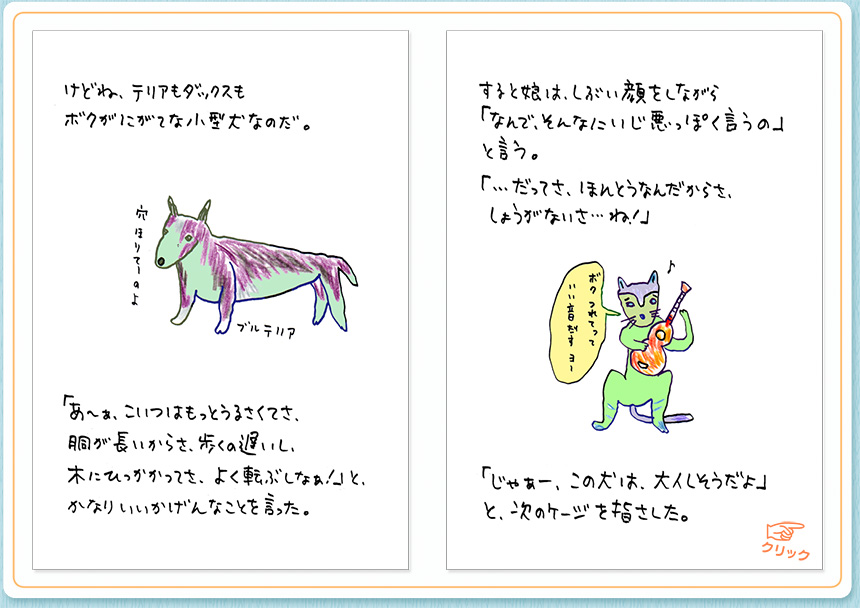 けどね、テリアもダックスも
ボクがにがてな小型犬なのだ。
穴ほりてーのよ
ブルテリア
「あ〜ぁ、こいつはもっとうるさくてさ、
胴が長いからさ、歩くの遅いし、
木にひっかかってさ、よく転ぶしなぁ!」と、
かなりいいかげんなことを言った。
すると娘は、しぶい顔をしながら
「なんで、そんなにいじ悪っぽく言うの」
と言う。
「…だってさ、ほんとうなんだからさ、
しょうがないさ…ね!」
♪
ボク つれてって
いい音だすヨー
「じゃぁー、この犬は、大人しそうだよ」
と、次のケージを指さした。
クリック